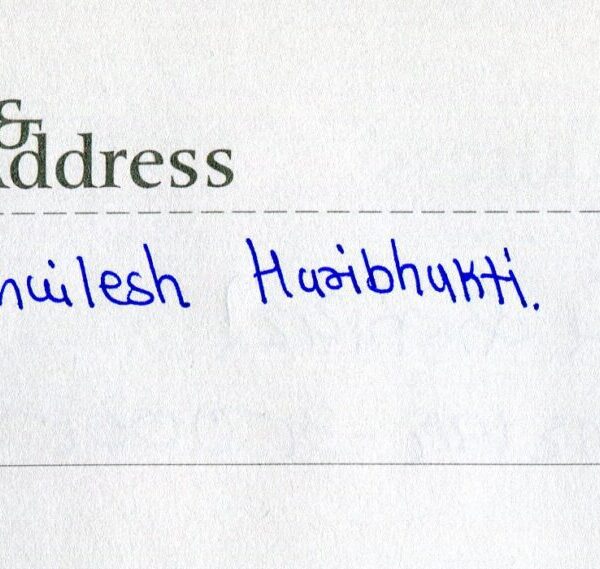 &
Address
hailesh Haribhakti.